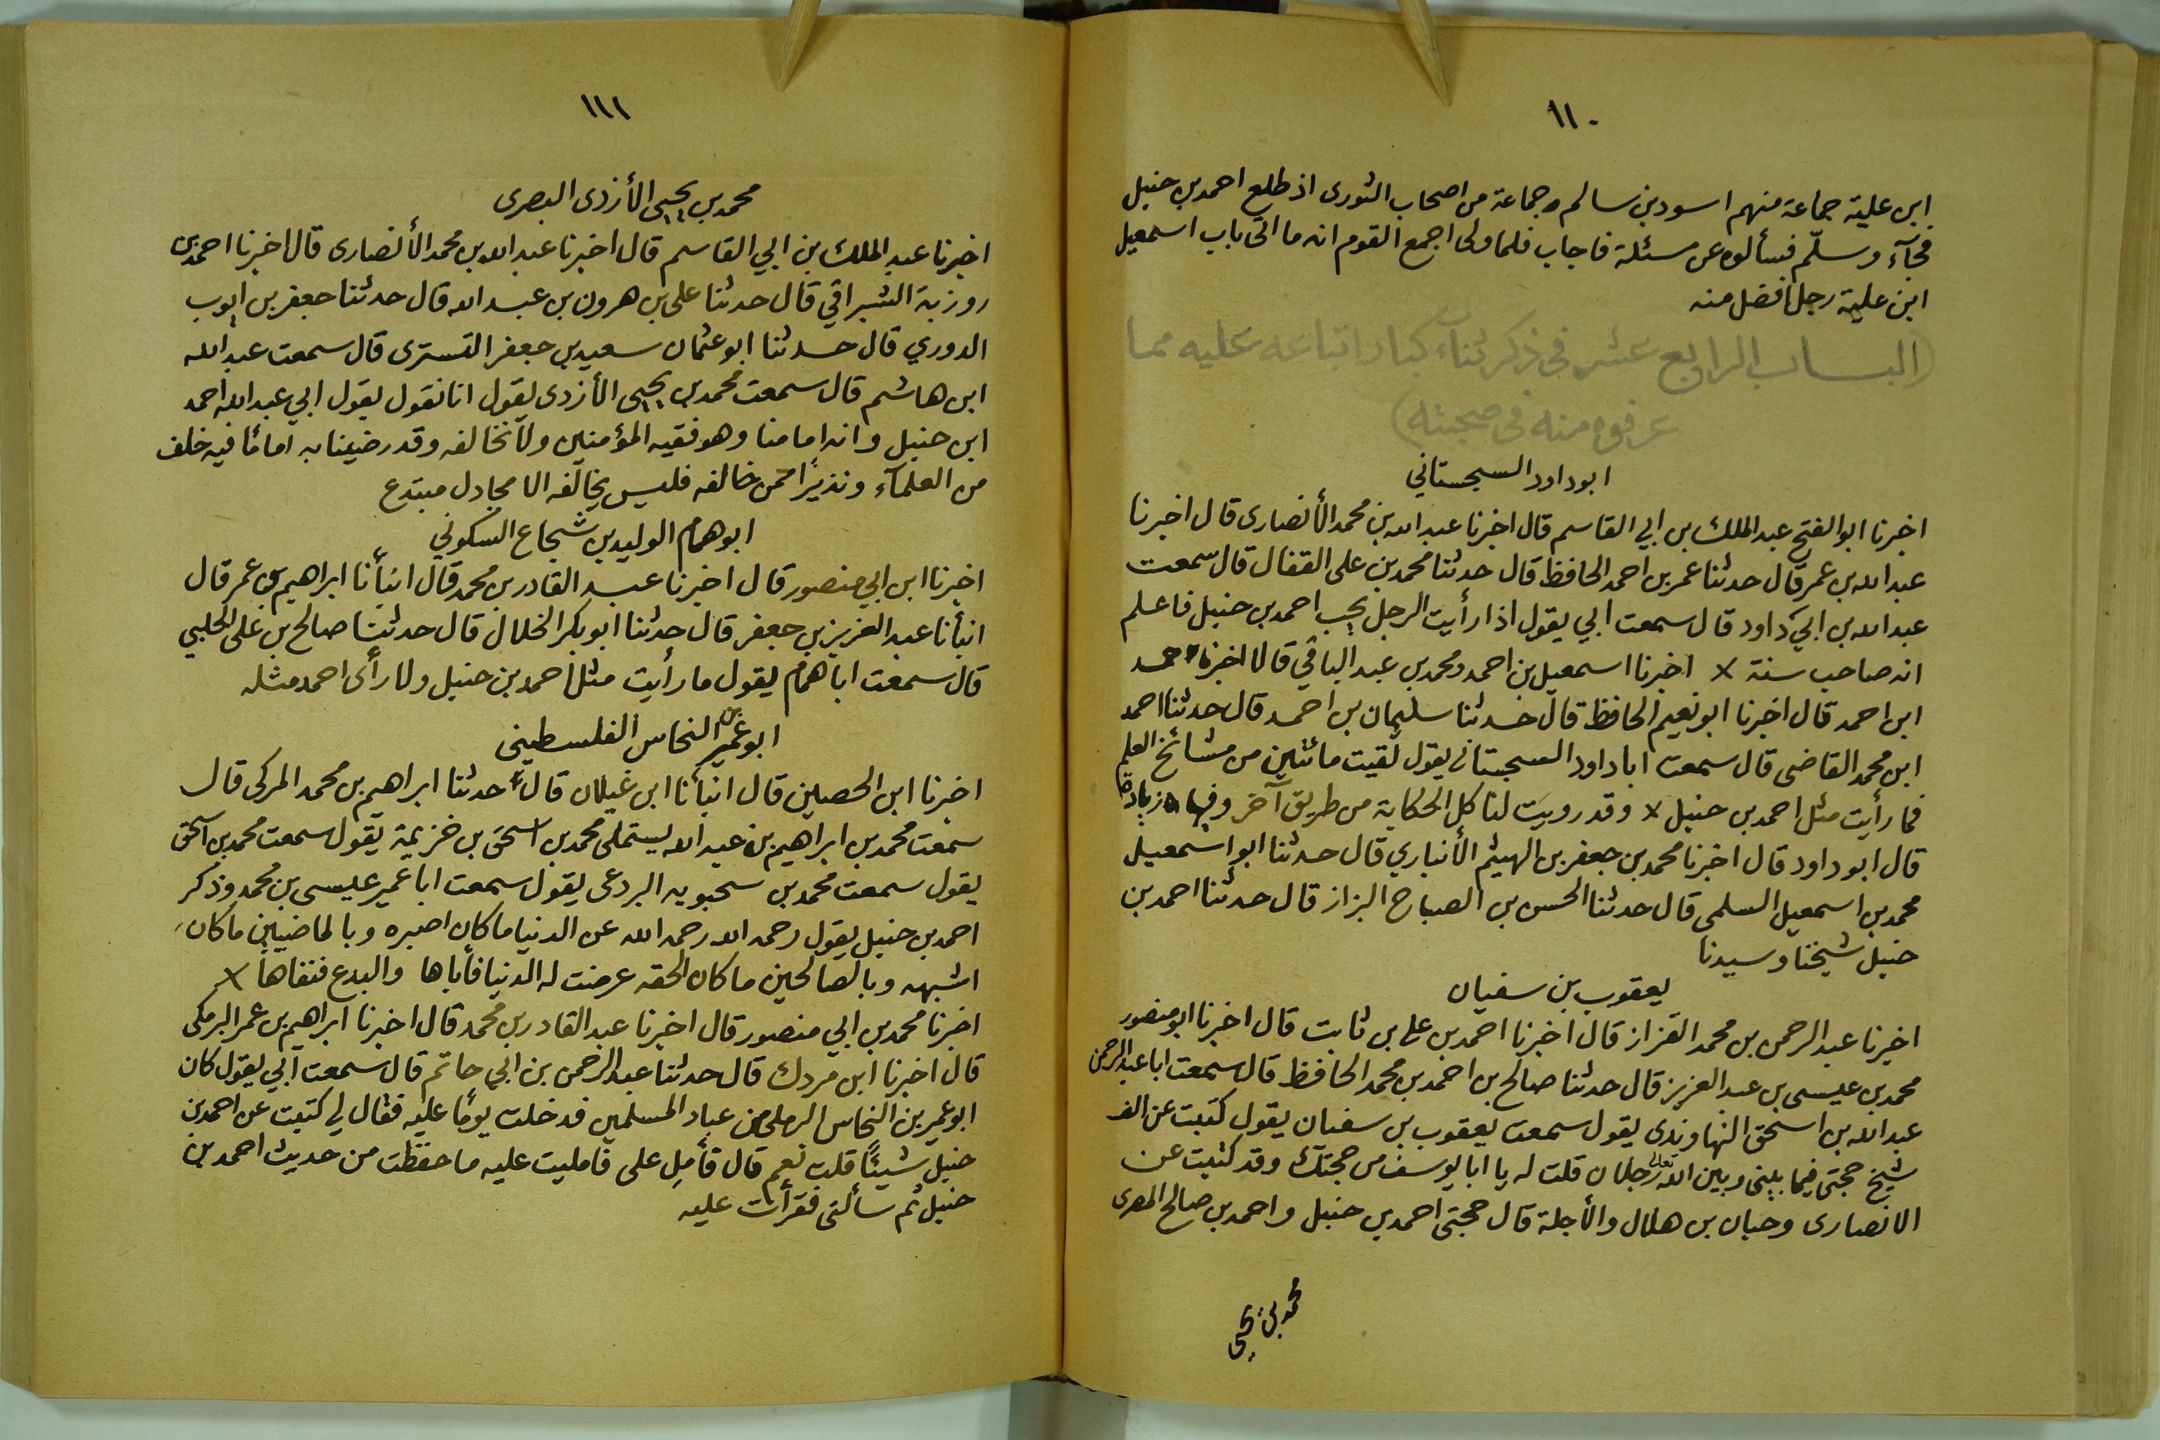 ١١٠
ابن علية جماعة منهم اسود بن سالم وجماعة من اصحاب الثورى اذ طلع احمد بن حنبل
فجآء وسلّم فسألوه عن مسئلة فاجاب فلما ولى اجمع القوم انه ما اتى باب اسمعيل
ابن علية رجل افضل منه
(البــاب الرابع عشر فى ذكر ثنآء كبار اتباعه عليه مما
عرفوه منه فى صحبته)
ابوداود السجستاني
اخبرنا ابو الفتح عبد الملك بن ابي القاسم قال اخبرنا عبد الله بن محمد الأنصارى قال اخبرنا
عبد الله بن عمر قال حدثنا عمر بن احمد الحافظ قال حدثنا محمد بن على القفال قال سمعت
عبد الله بن ابي داود قال سمعت ابي يقول اذا رأيت الرجل يحب احمد بن حنبل فاعلم
انه صاحب سنة × اخبرنا اسمعيل بن احمد ومحمد بن عبد الباقي قالا اخبرنا حمد
ابن احمد قال اخبرنا ابو نعيم الحافظ قال حدثنا سليمان بن احمد قال حدثنا احمد
ابن محمد القاضى قال سمعت ابا داود السجستانى يقول لقيت مائتين من مشائخ العلم
فما رأيت مثل احمد بن حنبل × وقد رويت لنا كل الحكاية من طريق آخر وفيها زيادة
قال ابو داود قال اخبرنا محمد بن جعفر بن الهيثم الأنباري قال حدثنا ابو اسمعيل
محمد بن اسمعيل السلمى قال حدثنا الحسن بن الصباح البزاز قال حدثنا احمد بن
حنبل شيخنا وسيدنا
يعقوب بن سفيان
اخبرنا عبد الرحمن بن محمد القزاز قال اخبرنا احمد بن على بن ثابت قال اخبرنا ابو منصور
محمد بن عيسى بن عبد العزيز قال حدثنا صالح بن احمد بن محمد الحافظ قال سمعت ابا عبد الرحمن
عبد الله بن اسحق النهاوندى يقول سمعت يعقوب بن سفيان يقول كتبت عن الف
شيخ حجتى فيما بينى وبين الله تعالى رجلان قلت له يا ابا يوسف من حجتك وقد كتبت عن
الانصارى وحبان بن هلال والأجلة قال حجتى احمد بن حنبل واحمد بن صالح المصرى
محمد بن يحيى
١١١
محمد بن يحيى الأزدى البصرى
اخبرنا عبد الملك بن ابي القاسم قال اخبرنا عبد الله بن محمد الأنصارى قال اخبرنا احمد بن
روزبة الشيراقي قال حدثنا على بن هرون بن عبد الله قال حدثنا جعفر بن ايوب
الدوري قال حدثنا ابو عثمان سعيد بن جعفر التسترى قال سمعت عبد الله
ابن هاشم قال سمعت محمد بن يحيى الأزدى يقول انا نقول يقول ابي عبد الله احمد
ابن حنبل وانه امامنا وهو فقيه المؤمنين ولا نخالفه وقد رضينا به امامًا فيه خلف
من العلمآء ونذيرًا ممن خالفه فليس يخالفه الا مجادل مبتدع
ابو همام الوليد بن شجاع السكوني
اخبرنا ابن ابي منصور قال اخبرنا عبد القادر بن محمد قال انبأنا ابراهيم بن عمر قال
انبأنا عبد العزيز بن جعفر قال حدثنا ابو بكر الخلال قال حدثنا صالح بن على الحلبي
قال سمعت ابا همام يقول ما رأيت مثل احمد بن حنبل ولا رأى احمد مثله
ابو عمير بن النحاس الفلسطيني
اخبرنا ابن الحصين قال انبأنا ابن غيلان قال حدثنا ابراهيم بن محمد المركى قال
سمعت محمد بن ابراهيم بن عبد الله يستملى محمد بن اسحق بن خزيمة يقول سمعت محمد بن اسحق
يقول سمعت محمد بن سحبويه البردعى يقول سمعت ابا عمير عيسى بن محمد وذكر
احمد بن حنبل يقول رحمه الله رحمه الله عن الدنيا ما كان اصبره وبالماضيين ما كان
اشبهه وبالصالحين ما كان الحقه عرضت له الدنيا فأباها والبدع فنفاها ×
اخبرنا محمد بن ابي منصور قال اخبرنا عبد القادر بن محمد قال اخبرنا ابراهيم بن عمر البرمكى
قال اخبرنا ابن مردك قال حدثنا عبد الرحمن بن ابي حاتم قال سمعت ابي يقول كان
ابو عمير بن النحاس الرملى من عباد المسلمين فدخلت يومًا عليه فقال لى كتبت عن احمد بن
حنبل شيئًا قلت نعم قال فأملِ على فامليت عليه ما حفظت من حديث احمد بن
حنبل ثم سألنى فقرأت عليه